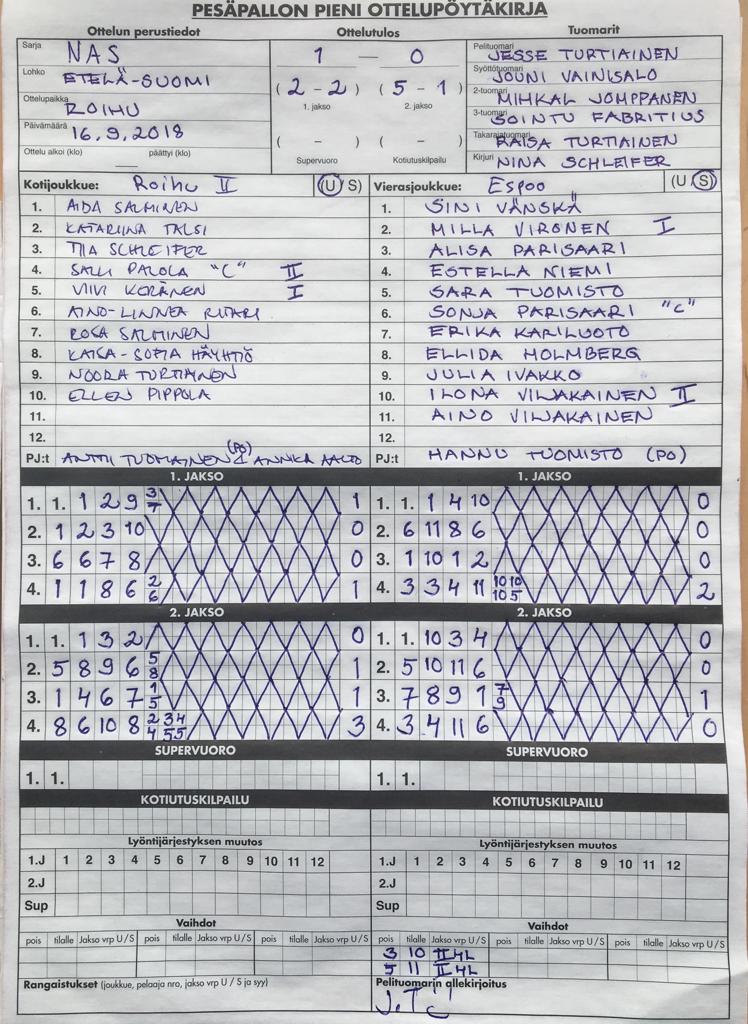 PESÄPALLON PIENI OTTELUPÖYTÄKIRJA
Ottelun perustiedot
Ottelutulos
Tuomarit
Sarja NAS
Lohko ETELÄ-SUOMI
Ottelupaikka ROIHU
Päivämäärä 16.9.2018
Ottelu alkoi (klo) päättyi (klo)
1 — 0
(2-2) (5-1)
1. jakso 2. jakso
( - ) ( - )
Supervuoro Kotiutuskilpailu
Pelituomari JESSE TURTIAINEN
Syöttötuomari JOUNI VAINISALO
2-tuomari MIHKAL JOMPPANEN
3-tuomari SOINTU FABRITIUS
Takarajatuomari RAISA TURTIAINEN
Kirjuri NINA SCHLEIFER
Kotijoukkue: Roihu II (U/S)
1. AIDA SALMINEN
2. KATARIINA TALSI
3. TIIA SCHLEIFER
4. SALLI PALOLA "C" II
5. VIIVI KORÄNEN I
6. AINO-LINNEA RITARI
7. ROSA SALMINEN
8. KAISA-SOFIA HÄYHTIÖ
9. NOORA TURTIAINEN
10. ELLEN PIPPOLA
11.
12.
PJ:t ANTTI TUOMAINEN (PO) ANNIKA AALTO
Vierasjoukkue: Espoo (U/S)
1. SINI VÄNSKÄ
2. MILLA VIRONEN I
3. ALISA PARISAARI
4. ESTELLA NIEMI
5. SARA TUOMISTO
6. SONJA PARISAARI "C"
7. ERIKA KARILUOTO
8. ELLIDA HOLMBERG
9. JULIA IVAKKO
10. ILONA VILJAKAINEN II
11. AINO VILJAKAINEN
12.
PJ:t HANNU TUOMISTO (PO)
1. JAKSO
1. 1. 1 2 9 3/7 1
2. 1 2 3 10 0
3. 6 6 7 8 0
4. 1 1 8 6 2/6 1
1. JAKSO
1. 1. 1 4 10 0
2. 6 11 8 6 0
3. 1 10 1 2 0
4. 3 3 4 11 10/10 10/5 2
2. JAKSO
1. 1. 1 3 2 0
2. 5 8 9 6 5/8 1
3. 1 4 6 7 1/5 1
4. 8 6 10 8 2/4 3/5 4/5 3
2. JAKSO
1. 1. 10 3 4 0
2. 5 10 11 6 0
3. 7 8 9 1 7/9 1
4. 3 4 11 6 0
SUPERVUORO
1. 1.
SUPERVUORO
1. 1.
KOTIUTUSKILPAILU
KOTIUTUSKILPAILU
Lyöntijärjestyksen muutos
1.J 1 2 3 4 5 6 7 8 9 10 11 12
2.J
Sup
Lyöntijärjestyksen muutos
1.J 1 2 3 4 5 6 7 8 9 10 11 12
2.J
Sup
Vaihdot
pois tilalle Jakso vrp U/S pois tilalle Jakso vrp U/S pois tilalle Jakso vrp U/S
Vaihdot
pois tilalle Jakso vrp U/S pois tilalle Jakso vrp U/S pois tilalle Jakso vrp U/S
3 10 II 4L
5 11 II 4L
Rangaistukset (joukkue, pelaaja nro, jakso vrp U / S ja syy)
Pelituomarin allekirjoitus